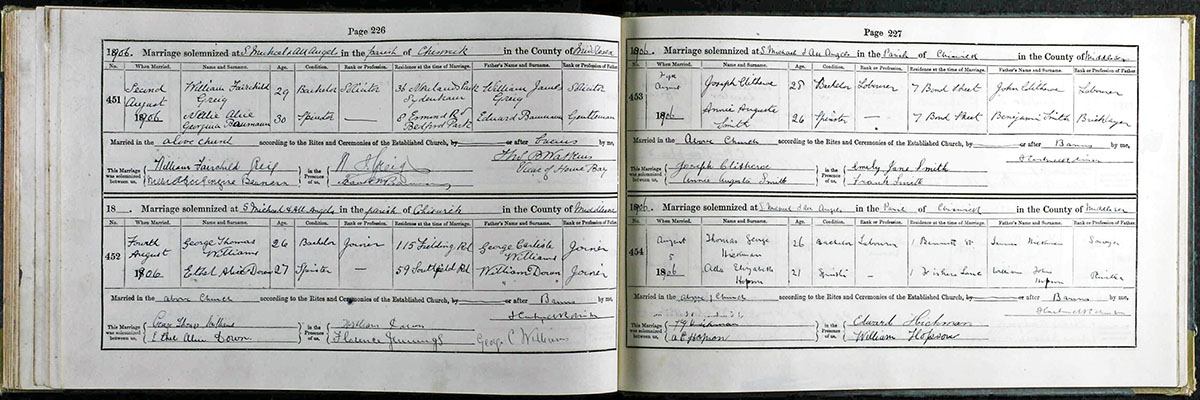 Page 226
1906. Marriage solemnized at S. Michael & All Angels in the parish of Chiswick in the County of Middlesex
No. When Married. Name and Surname. Age. Condition. Rank or Profession. Residence at the time of Marriage. Father's Name and Surname. Rank or Profession of Father.
451 Second August 1906 William Fairchild Greig 29 Bachelor Solicitor 36 Park Sydenham William James Greig Solicitor
Nellie Alice Georgina Baumann 30 Spinster — 8 Esmond Rd Bedford Park Edward Baumann Gentleman
Married in the above Church according to the Rites and Ceremonies of the Established Church, by — or after License by me,
Thos. B. Watkins
Vicar of
This Marriage was solemnized between us, William Fairchild Greig in the Presence of us,
18 Marriage solemnized at S. Michael & All Angels in the parish of Chiswick in the County of Middlesex
No. When Married. Name and Surname. Age. Condition. Rank or Profession. Residence at the time of Marriage. Father's Name and Surname. Rank or Profession of Father.
452 Fourth August 1906 George Thomas Williams 26 Bachelor Joiner 115 Fielding Rd George Carlisle Williams Joiner
Ethel Alice Down 27 Spinster — 59 Southfield Rd William Down Joiner
Married in the above Church according to the Rites and Ceremonies of the Established Church, by — or after Banns by me,
This Marriage was solemnized between us, George Thomas Williams in the Presence of us, William Down
Ethel Alice Down Florence Jennings George C Williams
Page 227
1906. Marriage solemnized at S. Michael & All Angels in the Parish of Chiswick in the County of Middlesex
No. When Married. Name and Surname. Age. Condition. Rank or Profession. Residence at the time of Marriage. Father's Name and Surname. Rank or Profession of Father.
453 August 1906 Joseph Clitheroe 28 Bachelor Labourer 7 Bond Street John Clitheroe Labourer
Annie Augusta Smith 26 Spinster — 7 Bond Street Benjamin Smith Bricklayer
Married in the Above Church according to the Rites and Ceremonies of the Established Church, by — or after Banns by me,
This Marriage was solemnized between us, Joseph Clitheroe in the Presence of us, Emily Jane Smith
Annie Augusta Smith Frank Smith
1906. Marriage solemnized at S. Michael & All Angels in the Parish of Chiswick in the County of Middlesex
No. When Married. Name and Surname. Age. Condition. Rank or Profession. Residence at the time of Marriage. Father's Name and Surname. Rank or Profession of Father.
454 August 5 1906 Thomas George Hickman 26 Bachelor Labourer 1 Bennett St James Hickman Sawyer
Ada Elizabeth Hopson 21 Spinster — Lane William John Hopson
Married in the above Church according to the Rites and Ceremonies of the Established Church, by — or after Banns by me,
This Marriage was solemnized between us, T G Hickman in the Presence of us, Edward Hickman
A E Hopson William Hopson